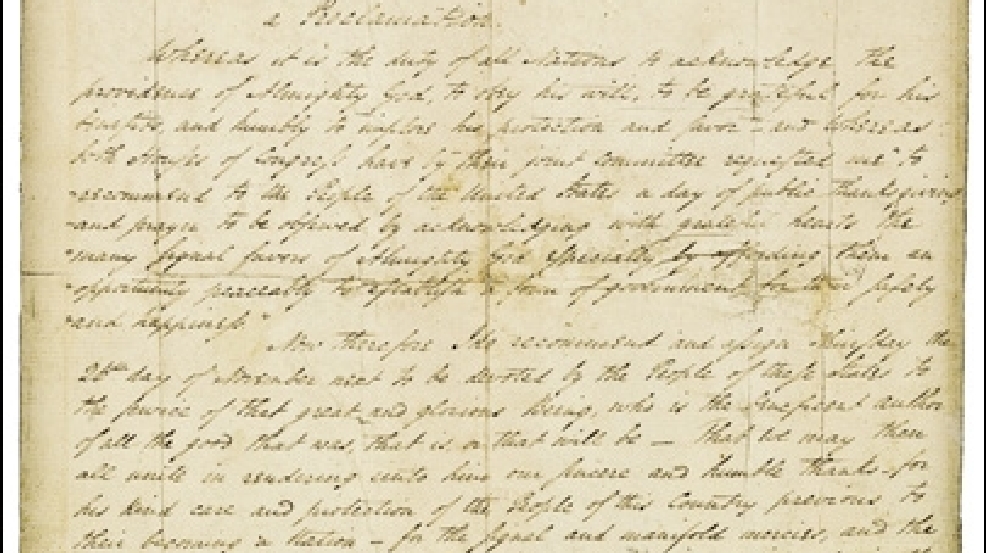 a Proclamation.
Whereas it is the duty of all Nations to acknowledge the
providence of Almighty God, to obey his will, to be grateful for his
benefits, and humbly to implore his protection and favor – and Whereas
both Houses of Congress have by their joint Committee requested me "to
"recommend to the People of the United States a day of public thanksgiving
"and prayer to be observed by acknowledging with grateful hearts the
"many signal favors of Almighty God especially by affording them an
"opportunity peaceably to establish a form of government for their safety
"and happiness."
Now therefore I do recommend and assign Thursday the
26th day of November next to be devoted by the People of these States to
the service of that great and glorious Being, who is the beneficent author
of all the good that was, that is, or that will be – That we may then
all unite in rendering unto him our sincere and humble thanks – for
his kind care and protection of the People of this Country previous to
their becoming a Nation – for the signal and manifold mercies, and the